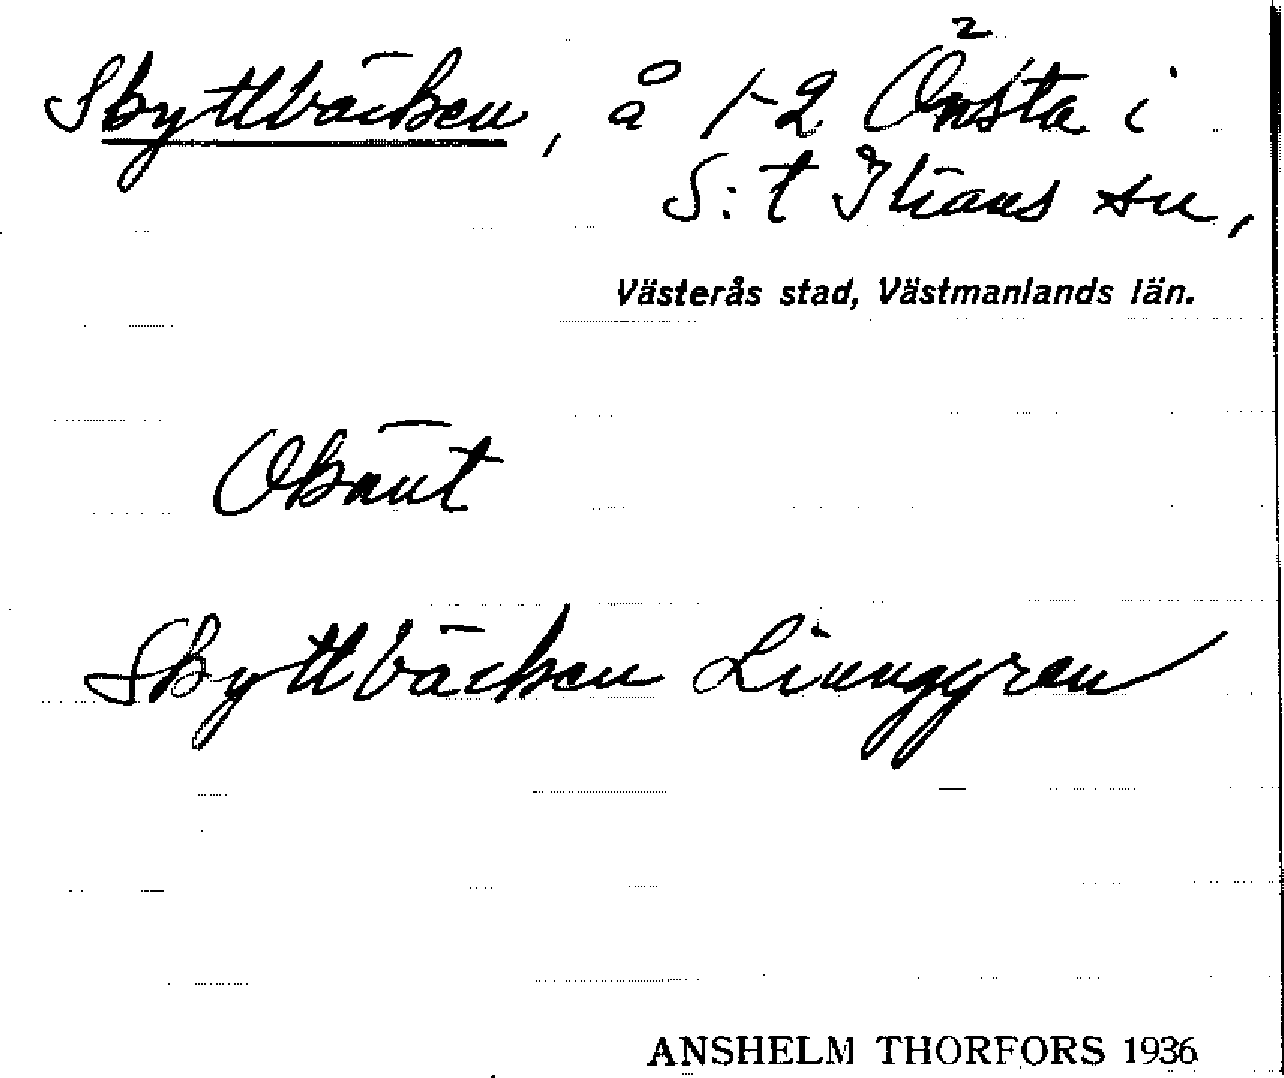 Skyttbäcken, å 1-2 Önsta i
S:t Ilians sn,
Västerås stad, Västmanlands län.
Okänt
Skyttbäcken Linnggren
ANSHELM THORFORS 1936